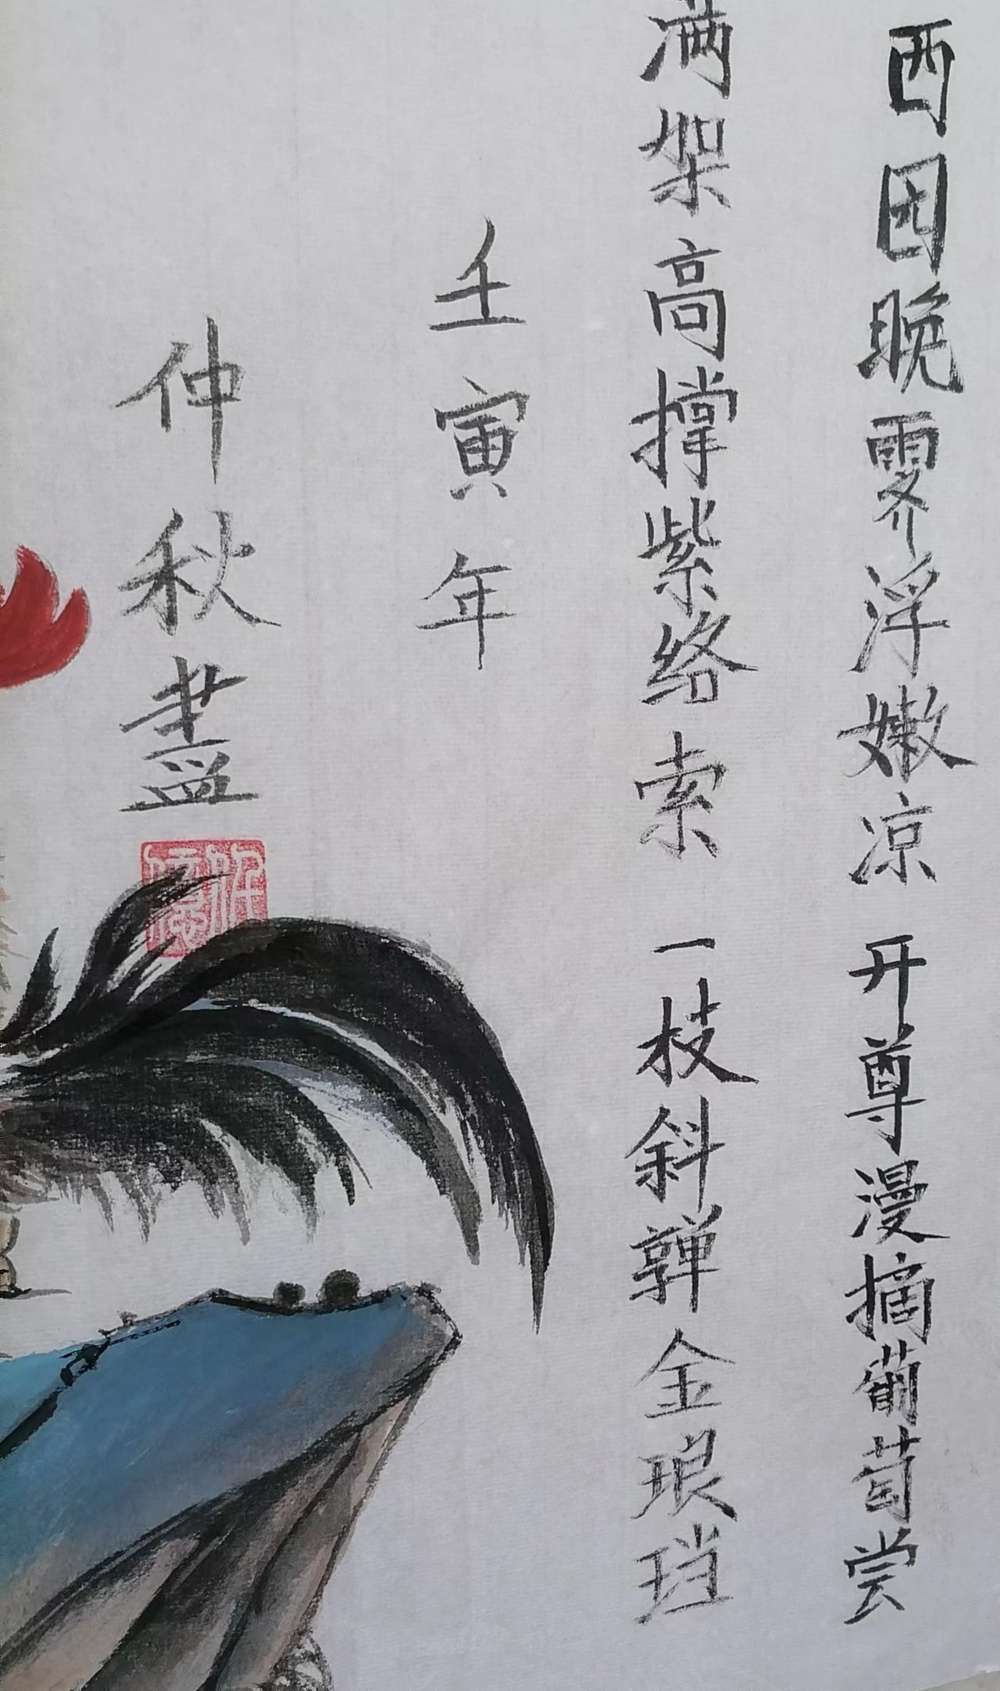 西园晚霁浮嫩凉 开尊漫摘葡萄尝
满架高撑紫络索 一枝斜亸金琅珰
壬寅年
仲秋畫